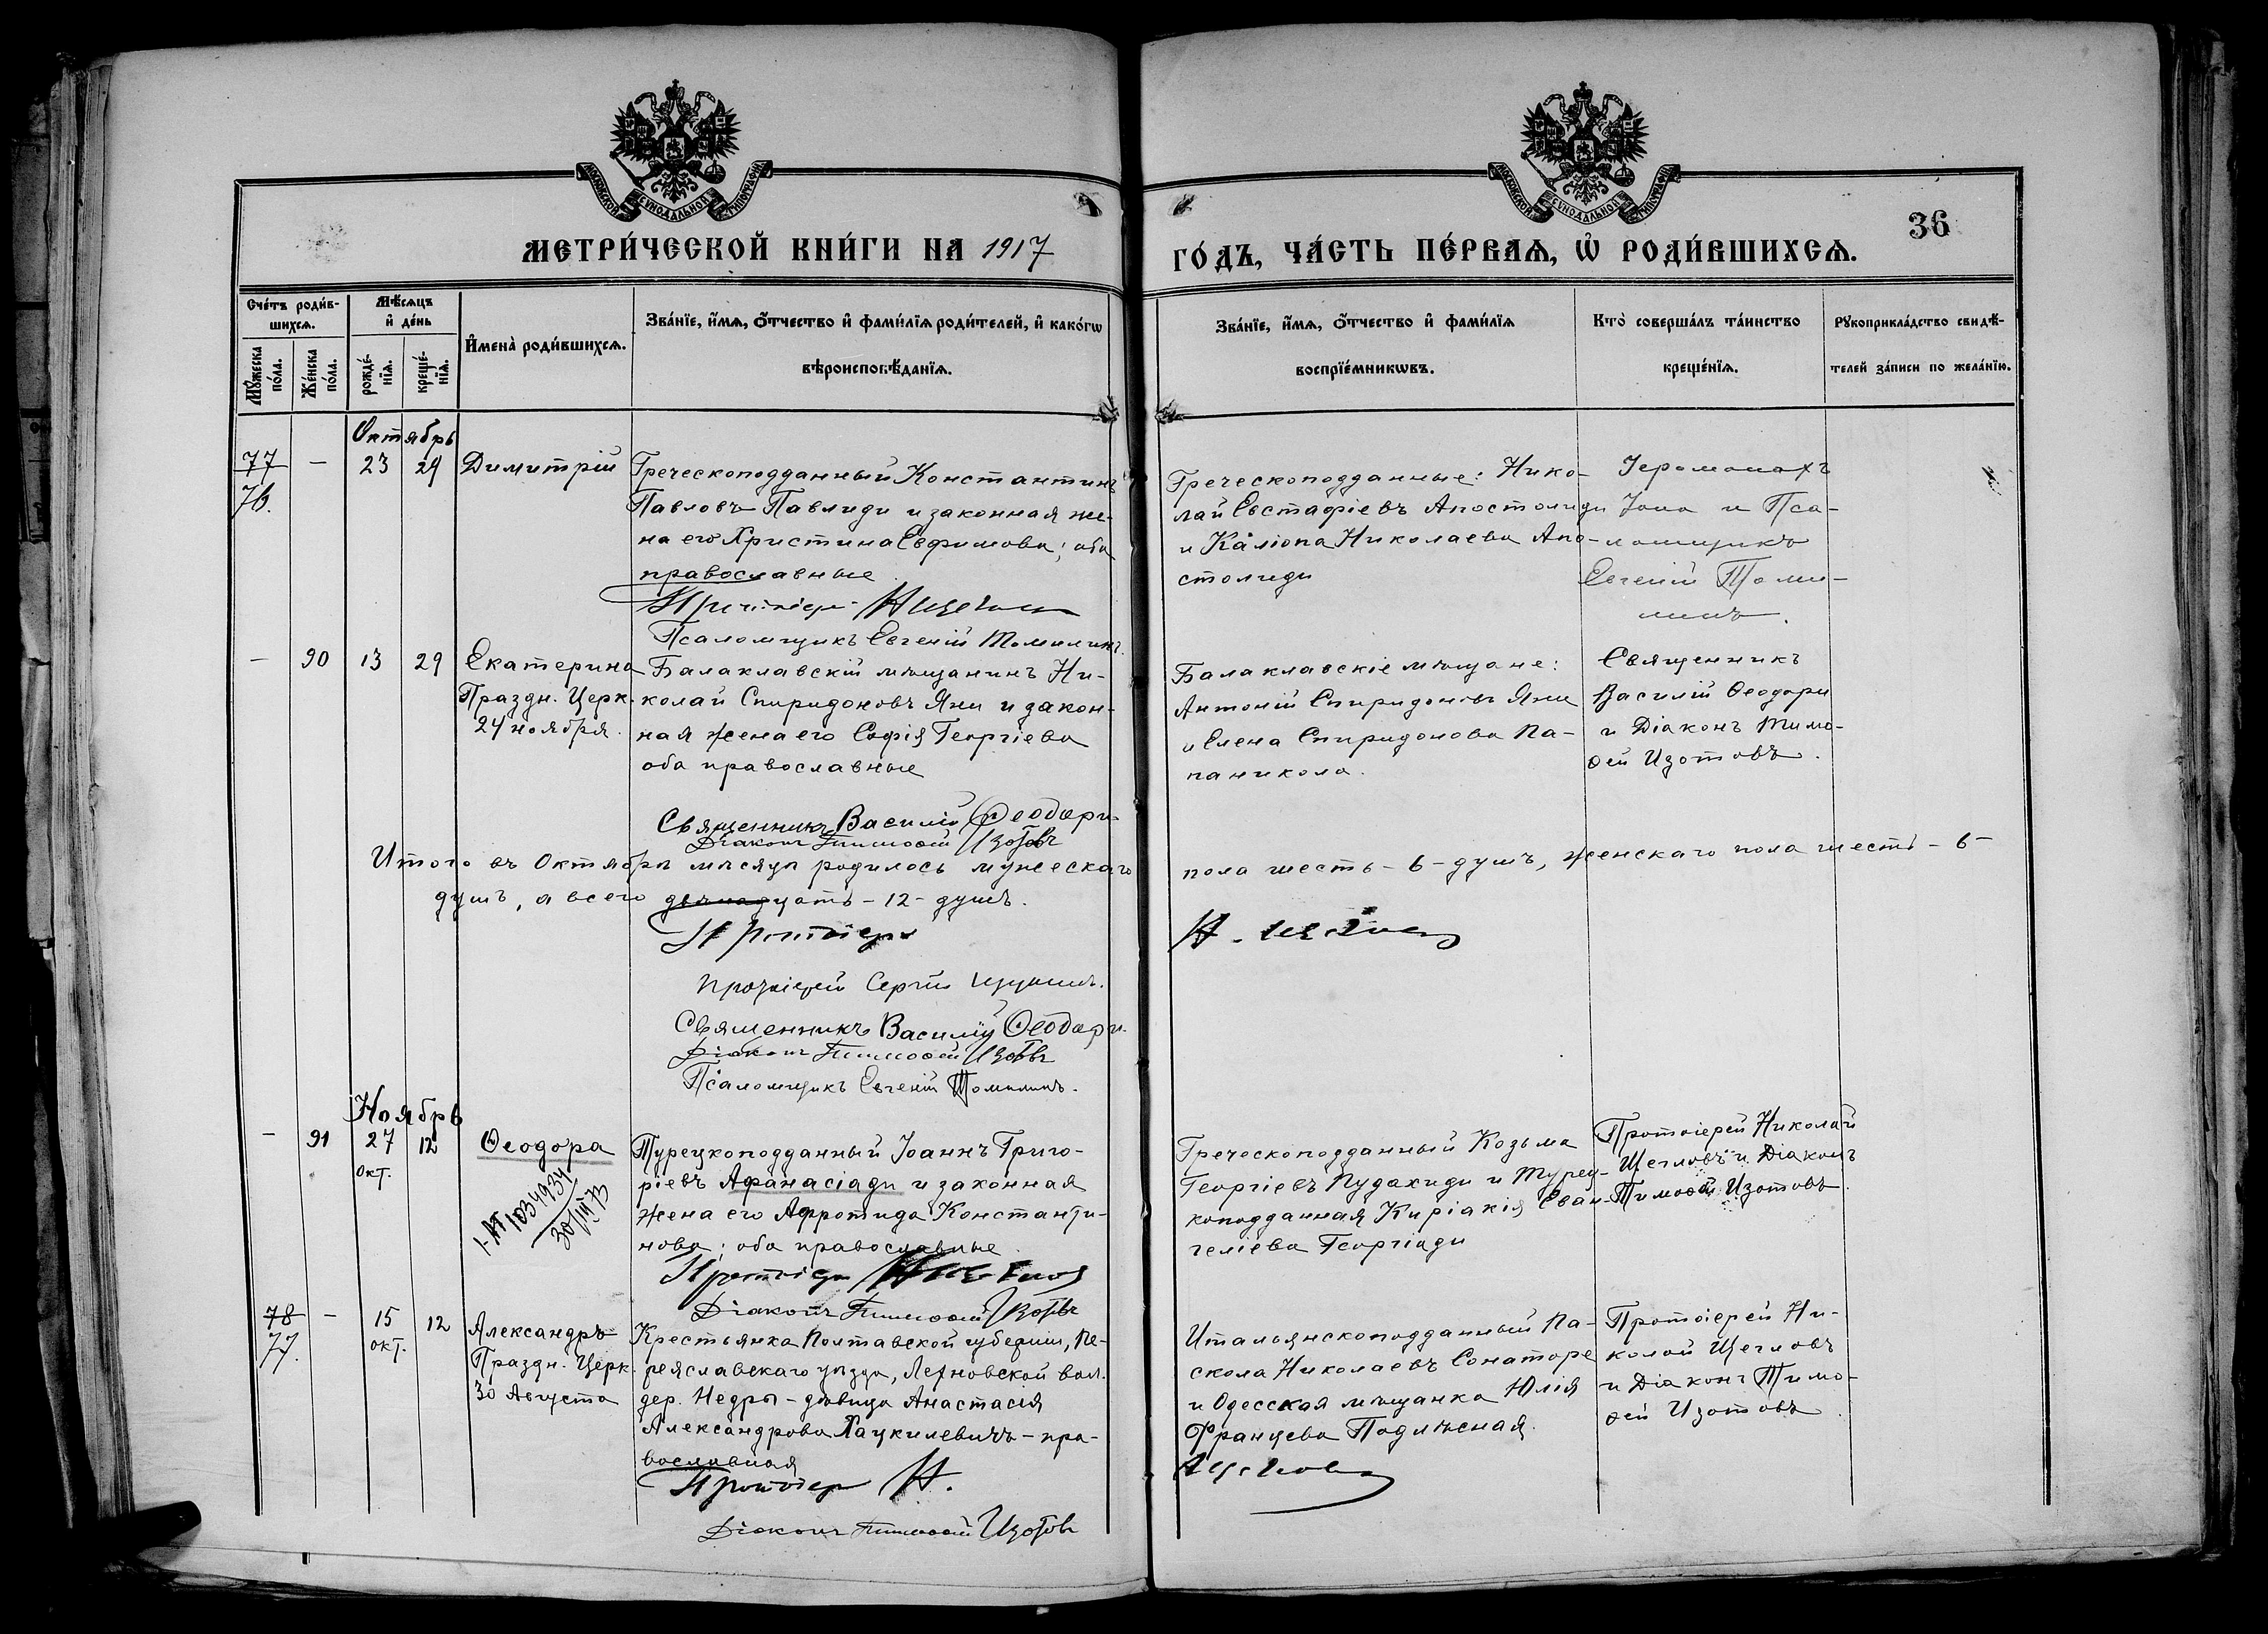 МОСКОВСКОЙ СѴНОДАЛЬНОЙ ТИПОГРАФІИ
МОСКОВСКОЙ СѴНОДАЛЬНОЙ ТИПОГРАФІИ
36
МЕТРИ́ЧЕСКОЙ КНИ́ГИ НА 1917
ГО́ДЪ, ЧА́СТЬ ПЕ́РВАѦ, Ѡ҆ РОДИ́ВШИХСѦ.
Сче́тъ роди́в-
шихсѧ.
Мѣ́сѧцъ
и҆ де́нь
Мꙋ́жеска
по́ла.
Же́нска
по́ла.
рожде́-
нїѧ.
креще́-
нїѧ.
И҆мена̀ роди́вшихсѧ.
Зва́нїе, и҆́мѧ, ѻ҆́тчество и҆ фами́лїѧ роди́телей, и҆ како́гѡ
вѣроисповѣ́данїѧ.
Зва́нїе, и҆́мѧ, ѻ҆́тчество и҆ фами́лїѧ
воспрїе́мникѡвъ.
Кто̀ соверша́лъ та́инство
креще́нїѧ.
Рꙋкоприкла́дство свидѣ́-
телей за́писи по жела́нїю.
Октябрь
77
76.
—
23
24
Димитрій
Греческоподданный Константинъ
Павловъ Павлиди и законная же-
на его Христина Евфимова; оба
православные
Протоіерей Н Щегловъ
Псаломщикъ Евгеній Томилинъ.
Греческоподданные: Нико-
лай Евстафіевъ Апостолиди
и Каліопа Николаева Апо-
столиди
Іеромонахъ
Іона и Пса-
ломщикъ
Евгеній Томи-
линъ.
—
90
13
29
Екатерина
Праздн. Церк.
24 ноября.
Балаклавскій мѣщанинъ Ни-
колай Спиридоновъ Яни и закон-
ная жена его Софія Георгіева
оба православные
Священникъ Василій Ѳеодори
Діаконъ Тимоѳей Изотовъ
Балаклавскіе мѣщане:
Антоній Спиридоновъ Яни
и Елена Спиридонова Па-
паникола.
Священникъ
Василій Ѳеодори
и Діаконъ Тимо-
ѳей Изотовъ.
Итого въ Октябрѣ мѣсяцѣ родилось мужескаго
пола шесть - 6 - душъ, женскаго пола шесть - 6 -
душъ, а всего двѣнадцать - 12 - душъ.
Протоіерей
Н. Щегловъ
Протоіерей Сергій
Священникъ Василій Ѳеодори
Діаконъ Тимоѳей Изотовъ
Псаломщикъ Евгеній Томилинъ.
Ноябрь
—
91
27
окт.
12
Ѳеодора
I-АП 1034934
30/III 73
Турецкоподданный Іоаннъ Григо-
ріевъ Афанасіади и законная
жена его Афротида Константи-
нова; оба православные
Протоіерей Н Щегловъ
Діаконъ Тимоѳей Изотовъ
Греческоподданный Козьма
Георгіевъ Пудакиди и Турец-
коподданная Киріакія Еван-
геліева Георгіади
Протоіерей Николай
Щегловъ и Діаконъ
Тимоѳей Изотовъ.
78
77.
—
15
окт.
12
Александръ
Праздн. Церк.
30 Августа
Крестьянка Полтавской губерніи, Пе-
реяславскаго уѣзда, вол.
дер. Недры - дѣвица Анастасія
Александрова Хацкилевичъ - пра-
вославная
Протоіерей Н.
Діаконъ Тимоѳей Изотовъ
Итальянскоподданный Па-
скола Николаевъ Сонаторе
и Одесская мѣщанка Юлія
Францева Подлѣсная.
Щегловъ
Протоіерей Ни-
колай Щегловъ
и Діаконъ Тимо-
ѳей Изотовъ.